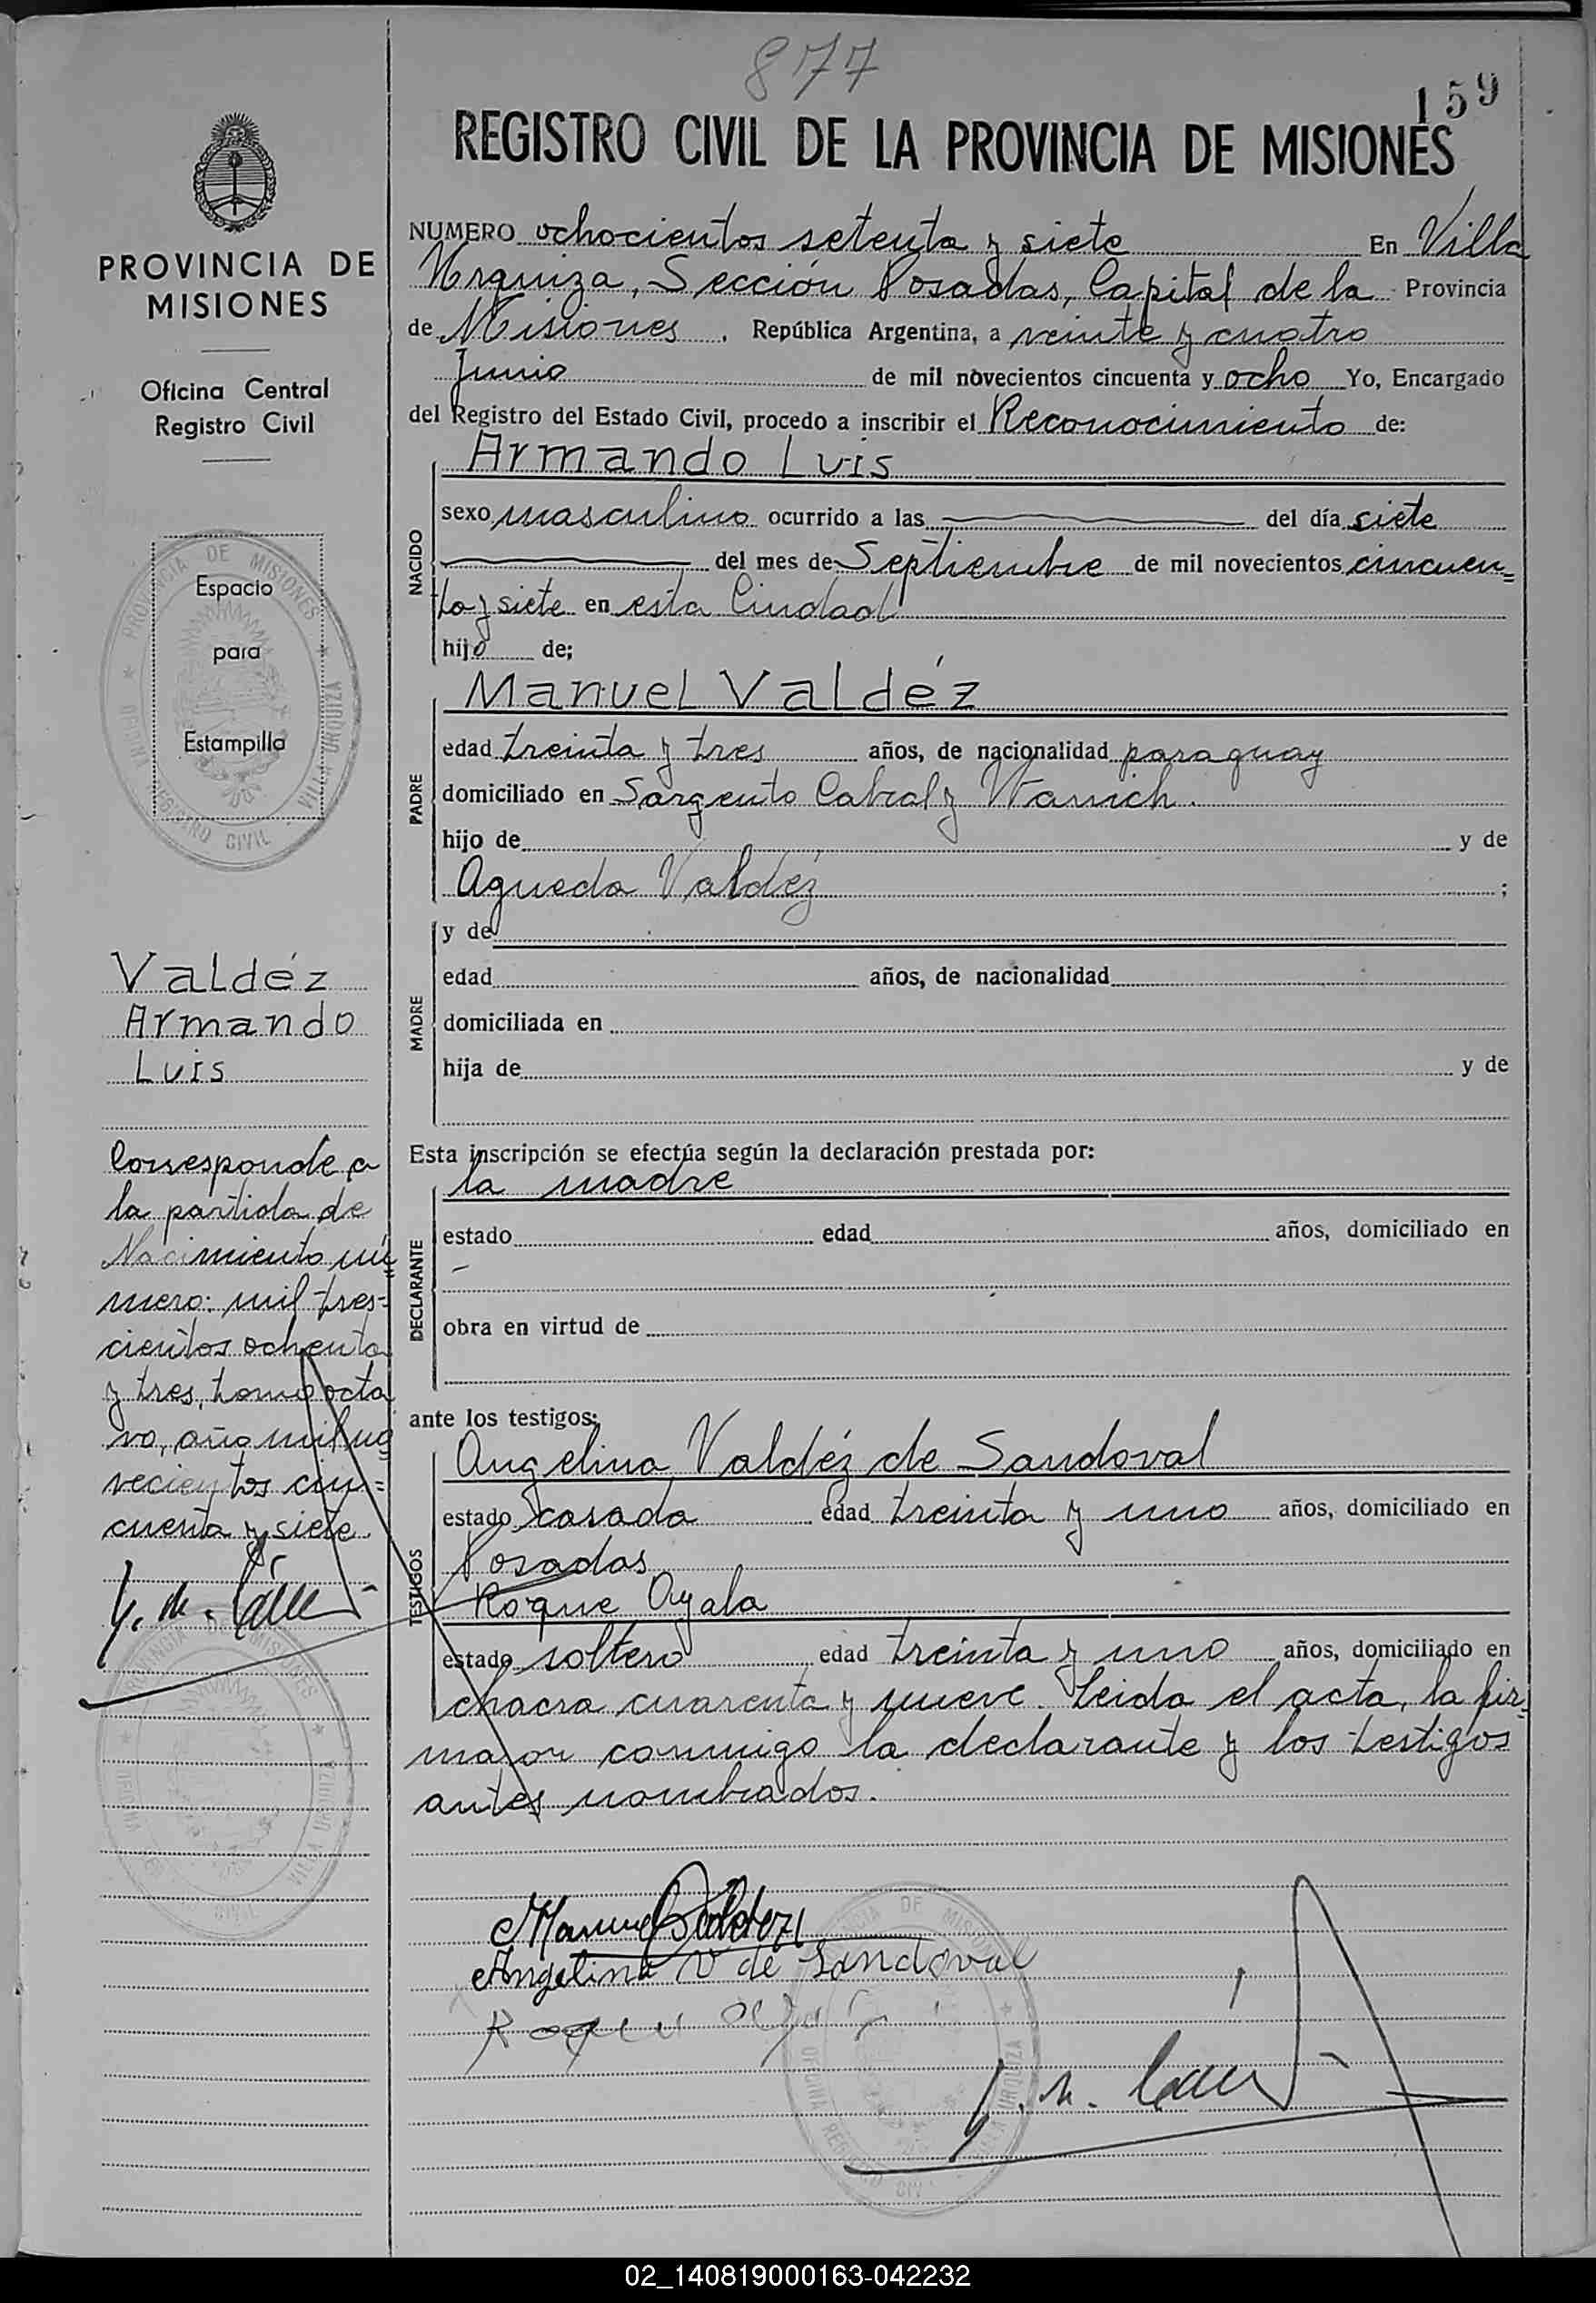 877
159
REGISTRO CIVIL DE LA PROVINCIA DE MISIONES
PROVINCIA DE
MISIONES
Oficina Central
Registro Civil
Espacio
para
Estampilla
Valdéz
Armando
Luis
Corresponde a
la partida de
Nacimiento nú
mero: mil tres-
cientos ochenta
y tres, tomo octa
vo, año mil no
vecientos cin=
cuenta y siete
NUMERO ochocientos setenta y siete En Villa
Urquiza, Sección Posadas, Capital de la Provincia
de Misiones, República Argentina, a veinte y cuatro
Junio de mil novecientos cincuenta y ocho Yo, Encargado
del Registro del Estado Civil, procedo a inscribir el Reconocimiento de:
NACIDO
Armando Luis
sexo masculino ocurrido a las del día siete
del mes de Septiembre de mil novecientos cincuen=
ta y siete en esta Ciudad
hijo de;
PADRE
Manuel Valdéz
edad treinta y tres años, de nacionalidad paraguay
domiciliado en Sargento Cabral y
hijo de y de
Agueda Valdéz ;
MADRE
y de
edad años, de nacionalidad
domiciliada en
hija de y de
Esta inscripción se efectúa según la declaración prestada por:
DECLARANTE
la madre
estado edad años, domiciliado en
obra en virtud de
ante los testigos:
TESTIGOS
Angelina Valdéz de Sandoval
estado casada edad treinta y uno años, domiciliado en
Posadas
Roque Ayala
estado soltero edad treinta y uno años, domiciliado en
chacra cuarenta y nueve. Leida el acta, la fir=
maron conmigo la declarante y los testigos
antes nombrados.
Manuel Valdez
Angelina V de Sandoval
PROVINCIA DE MISIONES
OFICINA REGISTRO CIVIL
VILLA URQUIZA
02_140819000163-042232